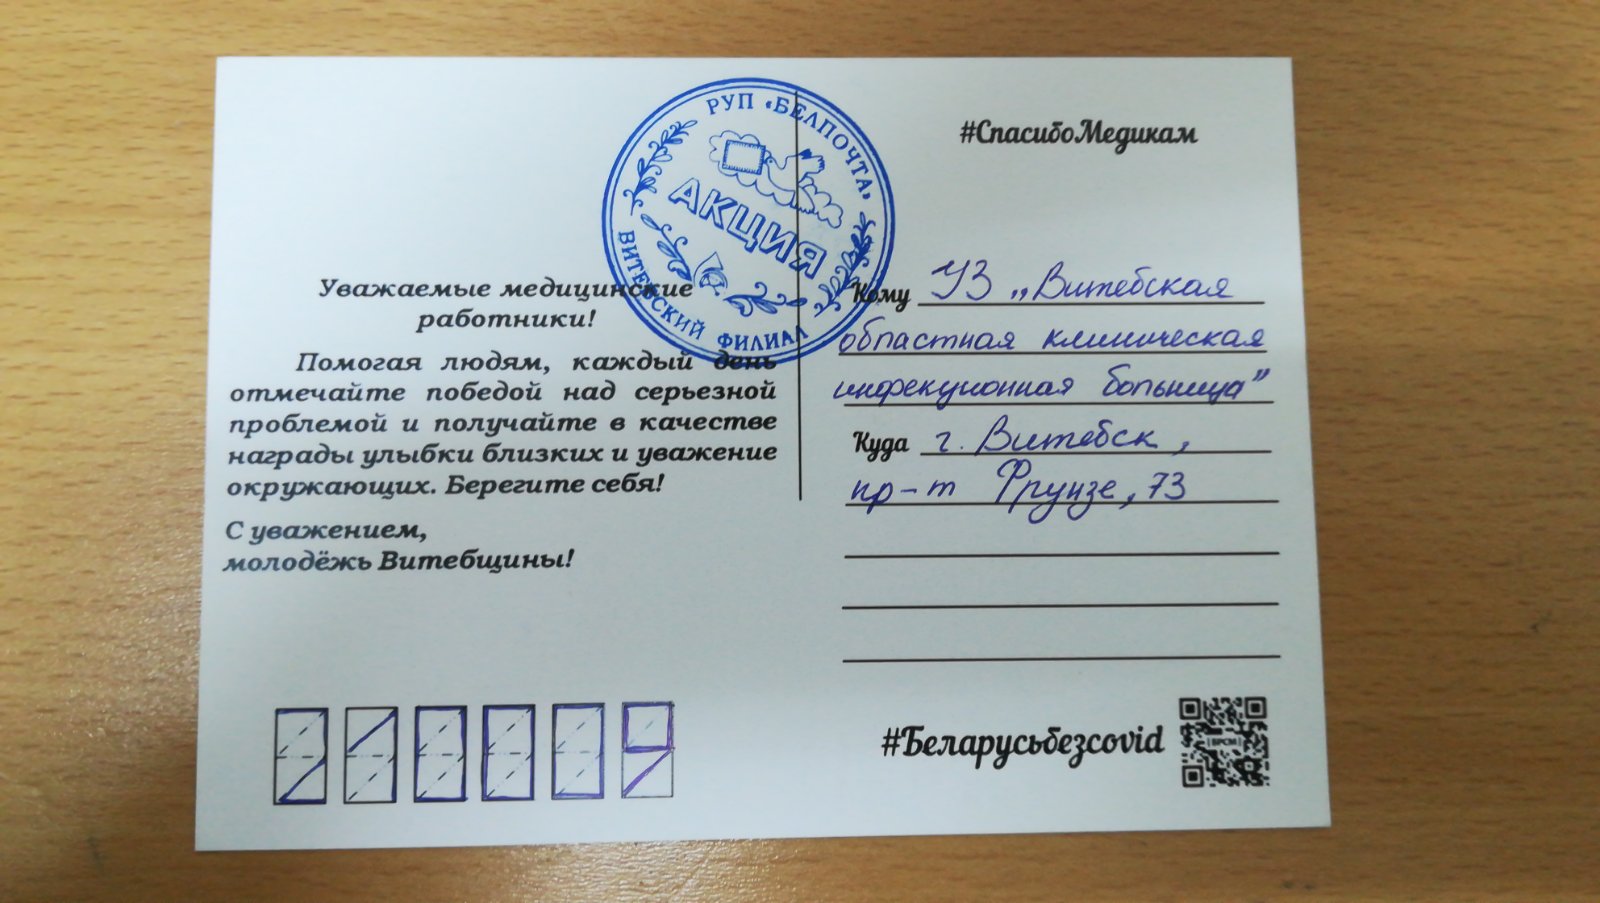 РУП «БЕЛПОЧТА»
АКЦИЯ
ВИТЕБСКИЙ ФИЛИАЛ
Уважаемые медицинские
работники!
Помогая людям, каждый день
отмечайте победой над серьезной
проблемой и получайте в качестве
награды улыбки близких и уважение
окружающих. Берегите себя!
С уважением,
молодёжь Витебщины!
#СпасибоМедикам
Кому УЗ „Витебская
областная клиническая
инфекционная больница"
Куда г. Витебск,
пр-т Фрунзе, 73
210009
#Беларусьбезcovid
БРСМ